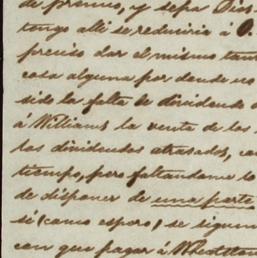 de premio, y sepa Dios
tengo alli se reduciria á 0.
preciso dar el mismo tam
cosa alguna por donde no
sido la falta de dividendo
á Williams la venta de los
los dividendos atrasados, co
tiempo, pero faltandome lo
de disponer de una parte
sé (como espero) se sigun
con que pagar á Wheatston